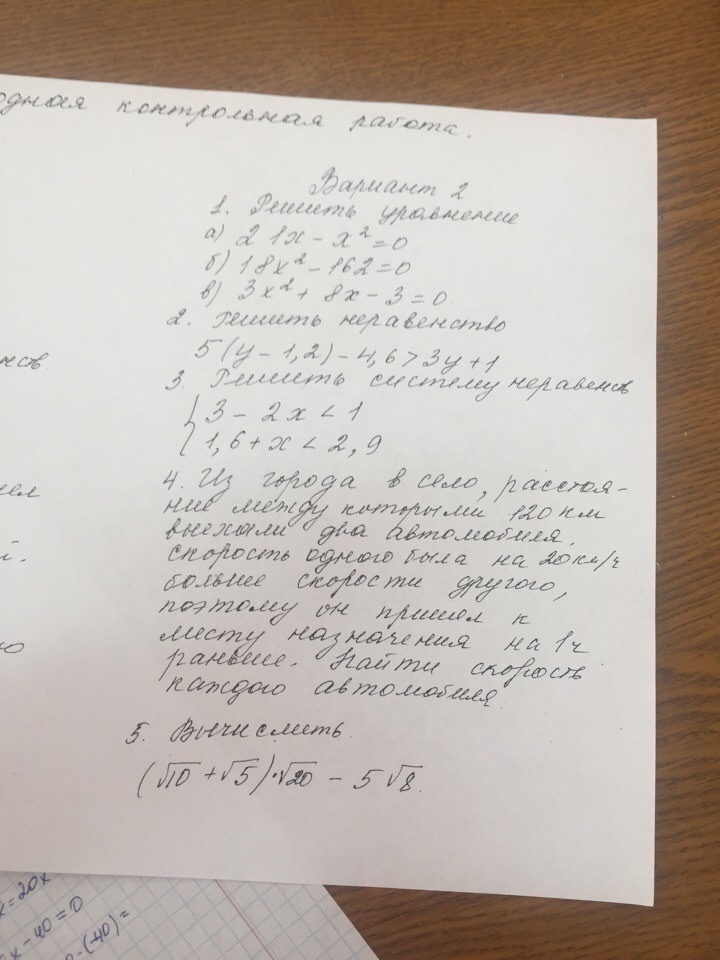 одная контрольная работа.
Вариант 2
1. Решить уравнение
а) 21х - х² = 0
б) 18х² - 162 = 0
в) 3х² + 8х - 3 = 0.
2. Решить неравенство
5(у - 1,2) - 4,6 > 3у + 1
3. Решить систему неравенств
{ 3 - 2х < 1
1,6 + х < 2,9
4. Из города в село, расстоя-
ние между которыми 120 км
выехали два автомобиля.
скорость одного была на 20 км/ч
больше скорости другого,
поэтому он пришел к
месту назначения на 1ч
раньше. Найти скорость
каждого автомобиля.
5. Вычислить.
(√10 + √5)·√20 - 5√8.
нств
ел
й.
ю
= 20х
х - 40 = 0
·(-40) =